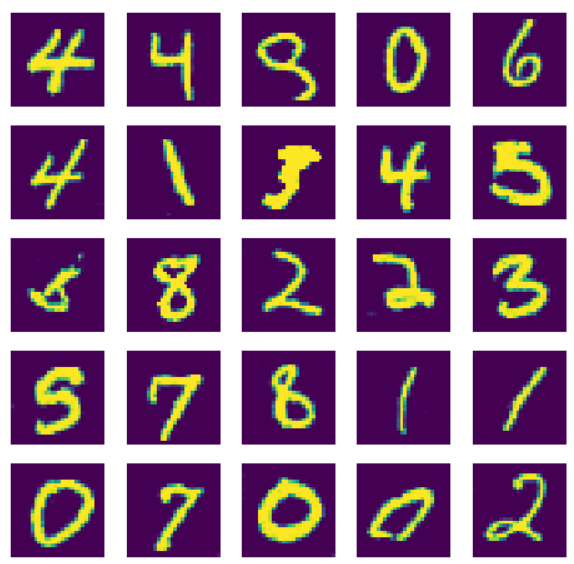 4 4 9 0 6
4 1 4 5
8 2 2 3
5 7 8 1 1
0 7 0 0 2